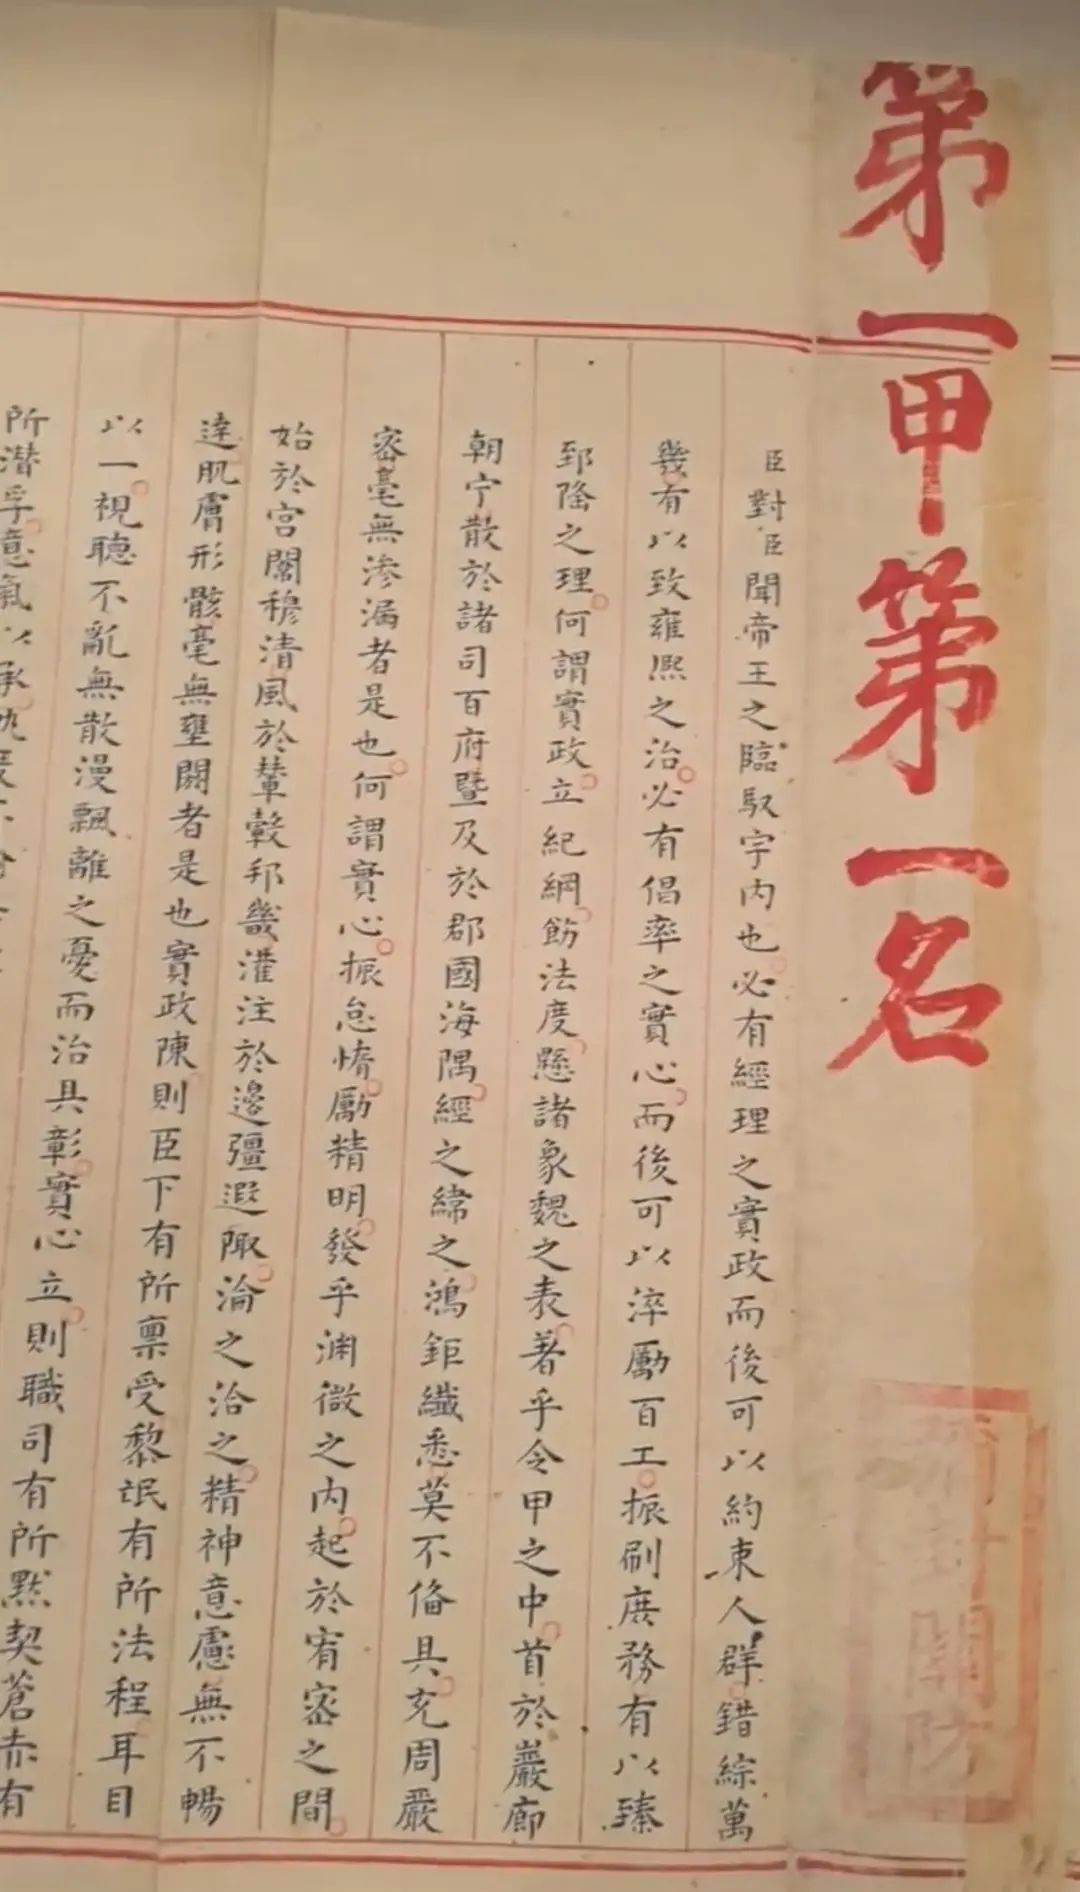 第一甲第一名
臣對臣聞帝王之臨馭宇內也必有經理之實政而後可以約束人群錯綜萬
幾有以致雍熙之治必有倡率之實心而後可以淬勵百工振刷庶務有以臻
郅隆之理何謂實政立紀綱飭法度懸諸象魏之表著乎令甲之中首於巖廊
朝宁散於諸司百府暨及於郡國海隅經之緯之鴻鉅纖悉莫不備具充周嚴
密毫無滲漏者是也何謂實心振怠惰勵精明發乎淵微之內起於宥密之間
始於宮闈穆清風於輦轂邦畿灌注於邊彊遐陬淪之洽之精神意慮無不暢
達肌膚形骸毫無壅閼者是也實政陳則臣下有所稟受黎氓有所法程耳目
以一視聽不亂無散漫飄離之憂而治具彰實心立則職司有所默契蒼赤有
所潛孚意氣以承
關防